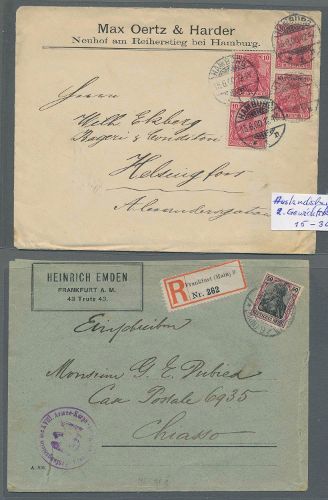 Max Oertz & Harder
Neuhof am Reiherstieg bei Hamburg.
HAMBURG
15.6.00
10
10
Herrn
Wilh Ekberg
Bageri & Conditori
Helsingfors
Alexandersgatan
Auslandsbrief
2. Gewichtsst
15-30
HEINRICH EMDEN
FRANKFURT A. M.
43 Trutz 43.
R
Frankfurt (Main) 9
Nr. 262
50
Einschreiben
Monsieur G E Dubied
Case Postale 6935
Chiasso
XVIII. Armee-Korps